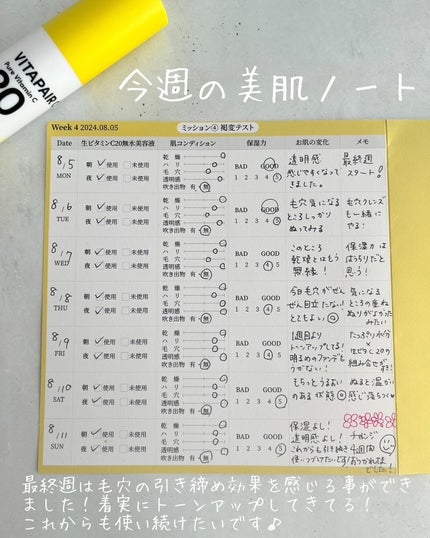 VITAPAIR C
Pure Vitamin C
20
今週の美肌ノート
Week 4 2024.08.05
ミッション④ 褐変テスト
Date 生ビタミンC20無水美容液 肌コンディション 保湿力 お肌の変化 メモ
8/5 MON
朝 使用 未使用
夜 使用 未使用
乾燥
ハリ
毛穴
透明感
吹き出物 有 無
BAD GOOD
1 2 3 4 5
透明感
感じやすくなって
きました。
最終週
スタート!
8/6 TUE
朝 使用 未使用
夜 使用 未使用
乾燥
ハリ
毛穴
透明感
吹き出物 有 無
BAD GOOD
1 2 3 4 5
毛穴気になる
ところしっかり
ぬってみる
毛穴クレンズ
も一緒に
やる!
8/7 WED
朝 使用 未使用
夜 使用 未使用
乾燥
ハリ
毛穴
透明感
吹き出物 有 無
BAD GOOD
1 2 3 4 5
このところ
乾燥とはもう
無縁!
保湿力は
ばっちりだと
思う!
8/8 THU
朝 使用 未使用
夜 使用 未使用
乾燥
ハリ
毛穴
透明感
吹き出物 有 無
BAD GOOD
1 2 3 4 5
今日毛穴がぜん
ぜん目立たない!
とてもよい
気になる
ところの重ね
ぬりがよかった
みたい
8/9 FRI
朝 使用 未使用
夜 使用 未使用
乾燥
ハリ
毛穴
透明感
吹き出物 有 無
BAD GOOD
1 2 3 4 5
1週目より
トーンアップしてる!
明るめのファンデも
うかない!
たっぷり水分
×
生ビタC20の
組み合せが
8/10 SAT
朝 使用 未使用
夜 使用 未使用
乾燥
ハリ
毛穴
透明感
吹き出物 有 無
BAD GOOD
1 2 3 4 5
もちっとうるおい
のある状態
ぬると温か
感じ落ちつく
8/11 SUN
朝 使用 未使用
夜 使用 未使用
乾燥
ハリ
毛穴
透明感
吹き出物 有 無
BAD GOOD
1 2 3 4 5
保湿よし!
透明感よし!
これからも引き続き
使いつづけたいです!
チャレンジ
4週間
おつかれさま
でした!
最終週は毛穴の引き締め効果を感じる事ができ
ました！着実にトーンアップしてきてる！
これからも使い続けたいです♪